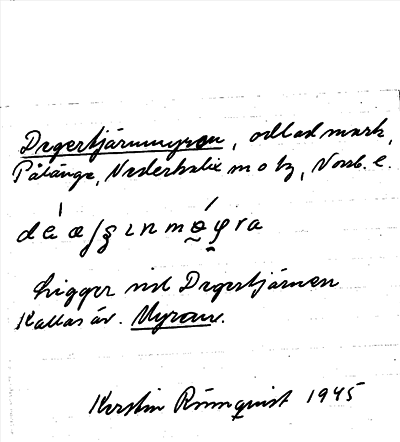 Degertjärnmyren, odlad mark,
Pålänge, Nederkalix sn o tg, Norrb. l.
Ligger vid Degertjärnen
Kallas äv. Myran.
Kerstin Rönnquist 1945